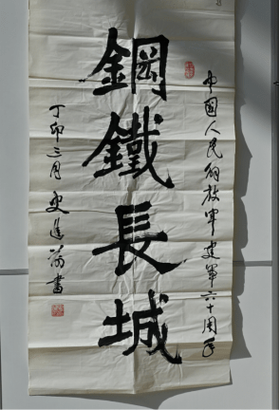 中國人民解放軍建軍六十周年
鋼鐵長城
丁卯三月 史進前書